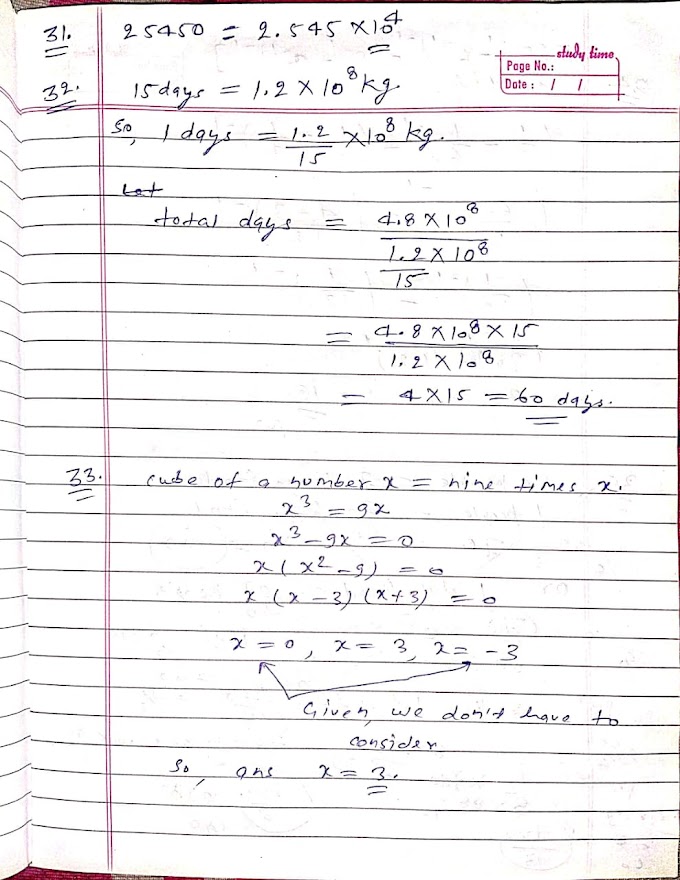 31. 25450 = 2.545 × 10⁴
study time
Page No.:
Date : / /
32. 15 days = 1.2 × 10⁸ kg
So, 1 days = 1.2/15 × 10⁸ kg.
Let
total days = 4.8 × 10⁸
1.2 × 10⁸
15
= 4.8 × 10⁸ × 15
1.2 × 10⁸
= 4 × 15 = 60 days.
33. cube of a number x = nine times x.
x³ = 9x
x³ - 9x = 0
x ( x² - 9) = 0
x (x - 3) (x + 3) = 0
x = 0, x = 3, x = -3
Given, we don't have to
consider
So, ans x = 3.